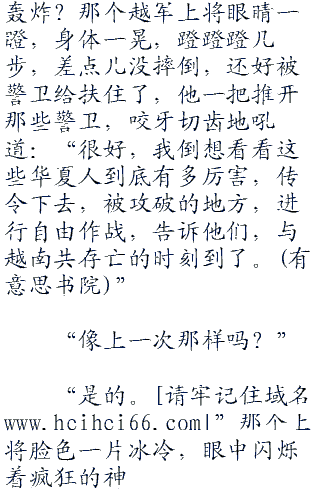 轰炸？那个越军上将眼睛一
瞪，身体一晃，蹬蹬蹬几
步，差点儿没摔倒，还好被
警卫给扶住了，他一把推开
那些警卫，咬牙切齿地吼
道：“很好，我倒想看看这
些华夏人到底有多厉害，传
令下去，被攻破的地方，进
行自由作战，告诉他们，与
越南共存亡的时刻到了。(有
意思书院)”
“像上一次那样吗？”
“是的。[请牢记住域名
www.hcihci66.com|”那个上
将脸色一片冰冷，眼中闪烁
着疯狂的神